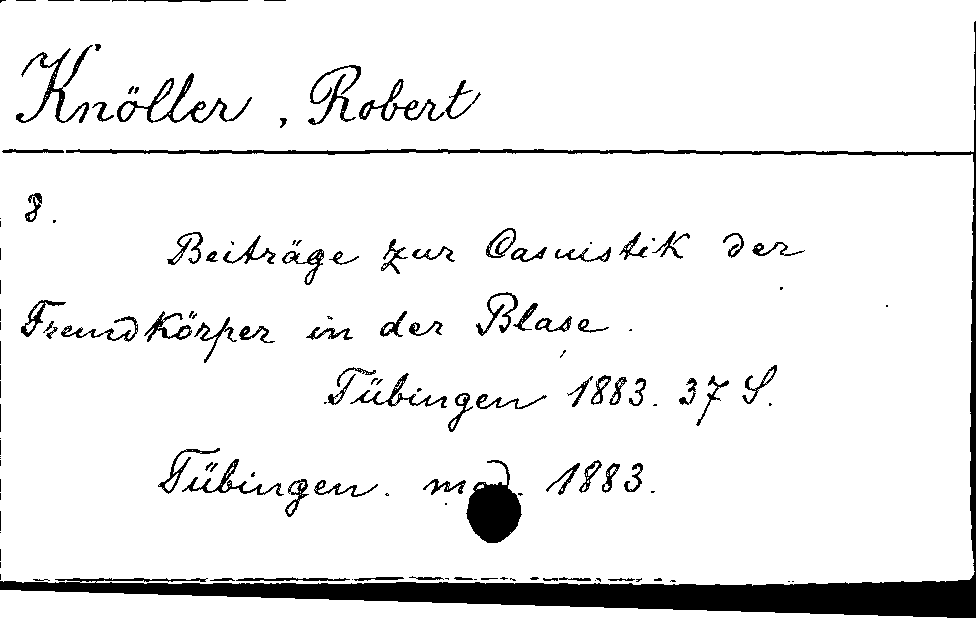 Knöller, Robert
8.
Beiträge zur Casuistik der
Fremdkörper in der Blase.
Tübingen 1883. 37 S.
Tübingen. med. 1883.